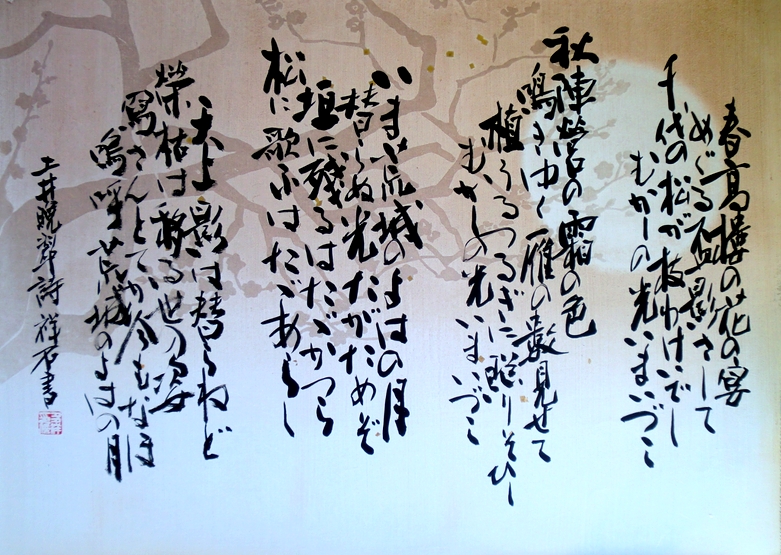 春高樓の花の宴
めぐる盃影さして
千代の松が枝わけいでし
むかしの光いまいづこ
秋陣營の霜の色
鳴きゆく雁の數見せて
植うるつるぎに照りそひし
むかしの光いまいづこ
いま荒城のよはの月
替らぬ光たがためぞ
垣に残るはたゞかつら
松に歌ふはたゞあらし
天上影は替らねど
榮枯は移る世の姿
寫さんとてか今もなほ
嗚呼荒城のよはの月
土井晩翠詩 祥石書